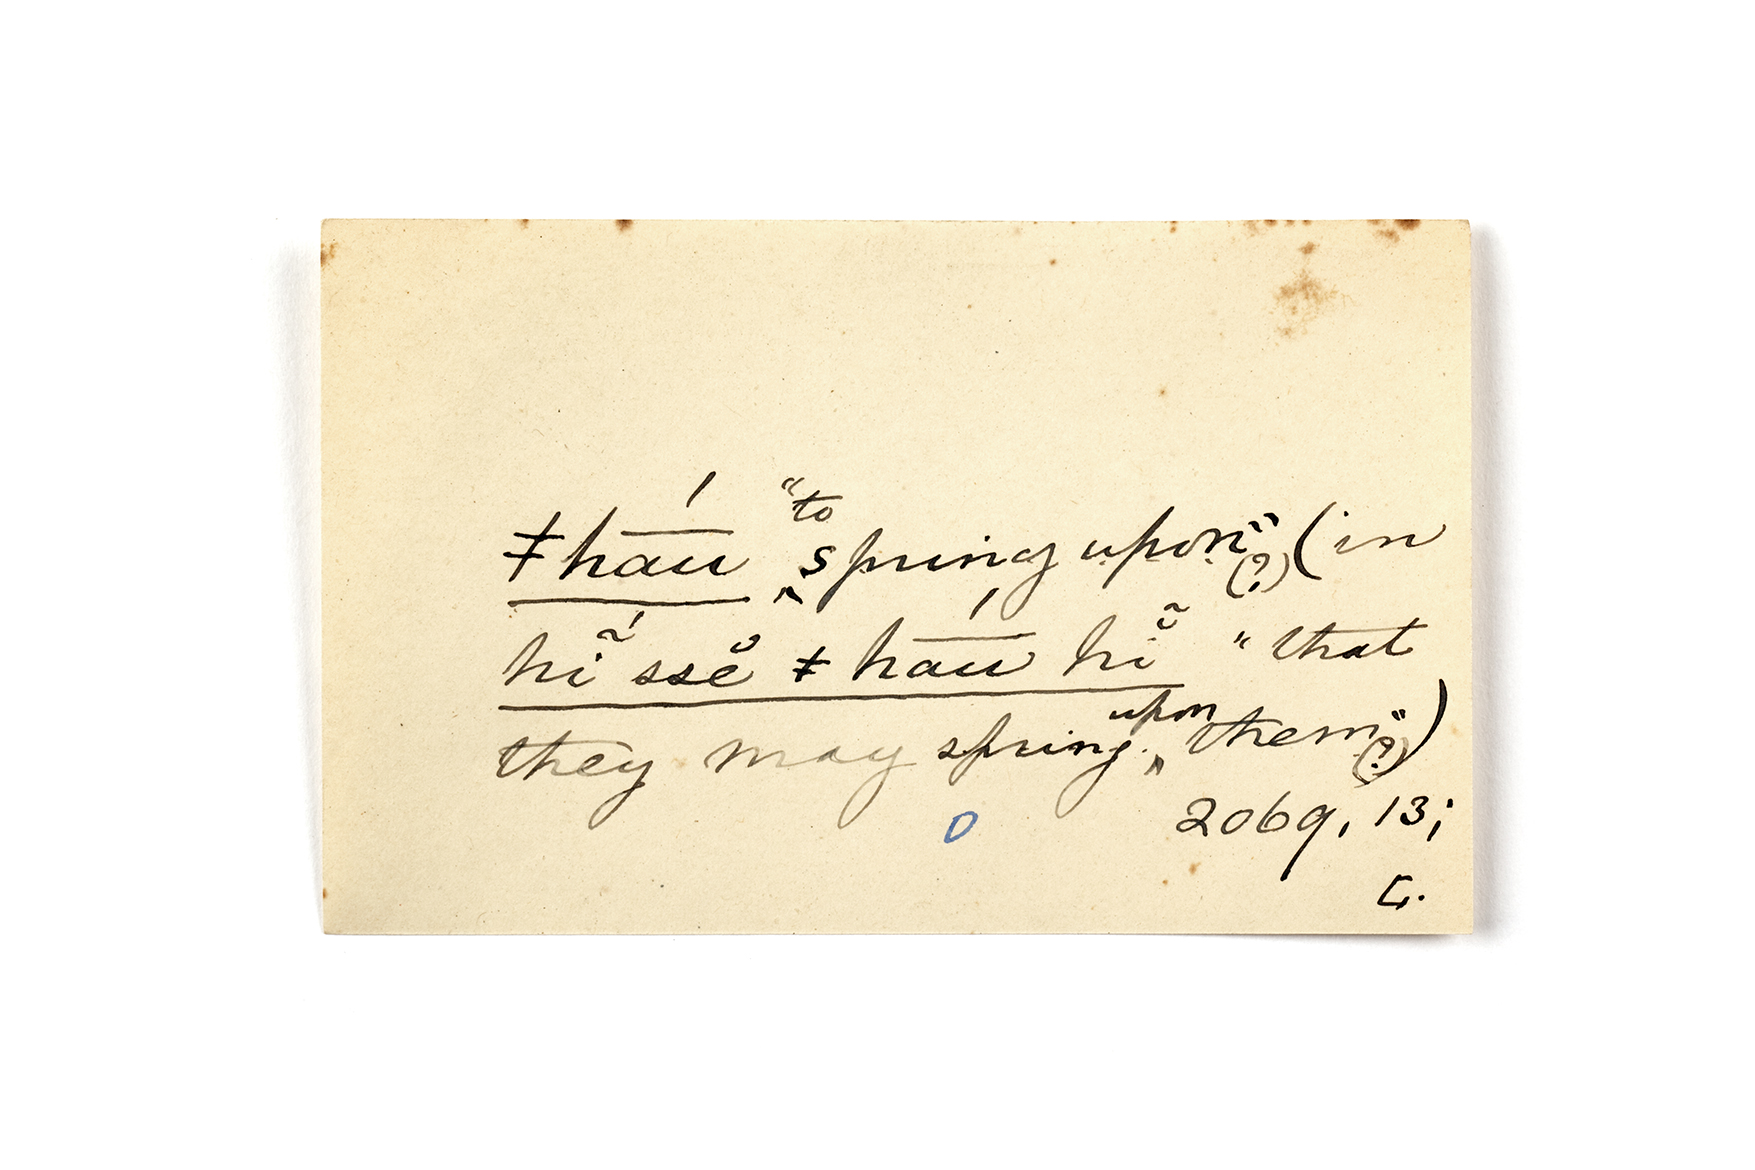 ǂhā́u "to spring upon" (?) (in
hĩ́ ssĕ ǂhā́u hĩ̆ "that
they may spring upon them" (?))
2069, 13;
0
C.